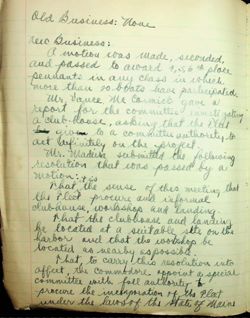 Old Business: None
New Business:
A motion was made, seconded,
and passed to award 4, 5 & 6th place
pendants in any class in which
more than 20 boats have participated.
Mr. Vance McCormick gave a
report for the committee investigating
a club-house, asking that the Fleet
give to a committee authority to
act definitely on the project.
Mr. Madeira submitted the following
resolution that was passed by a
motion:
That the sense of this meeting that
the Fleet procure and informal
clubhouse, workshop and landing.
That the clubhouse and landing
be located at a suitable site on the
harbor and that the workshop be
located as nearby as possible.
That, to carry this resolution into
effect, the commodore appoint a special
committee with full authority to
procure the incorporation of the Fleet
under the laws of the State of Maine